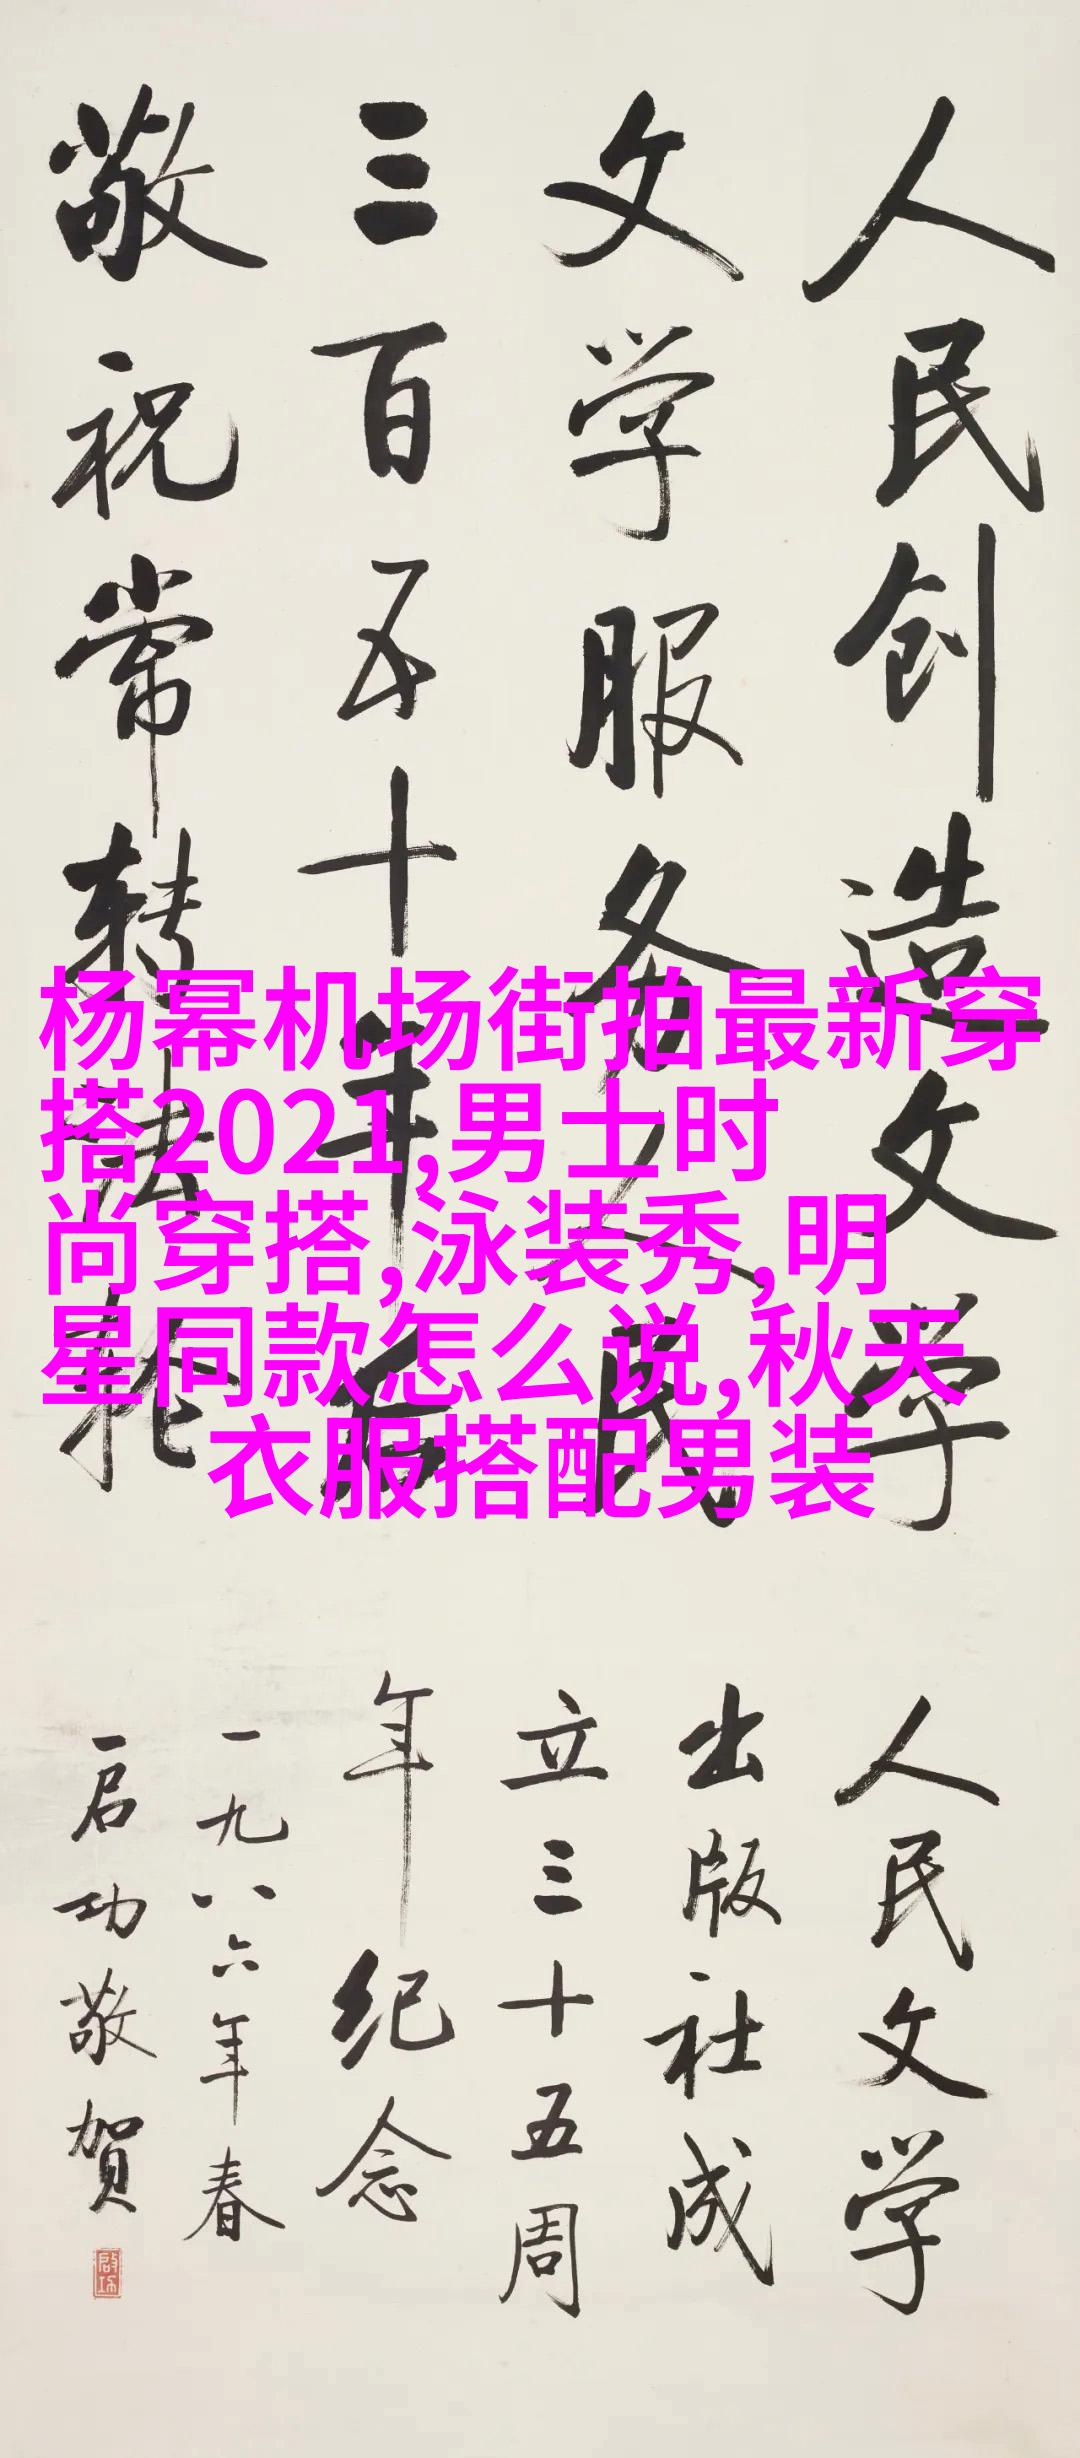 人民创造文学
文学服务人民
三百五十年
敬祝常转法轮
杨幂机场街拍最新穿
搭2021,男士时
尚穿搭,泳装秀,明
星同款怎么说,秋天
衣服搭配男装
人民文学
出版社成
立三十五周
年纪念
一九八六年春
启功敬贺
启功